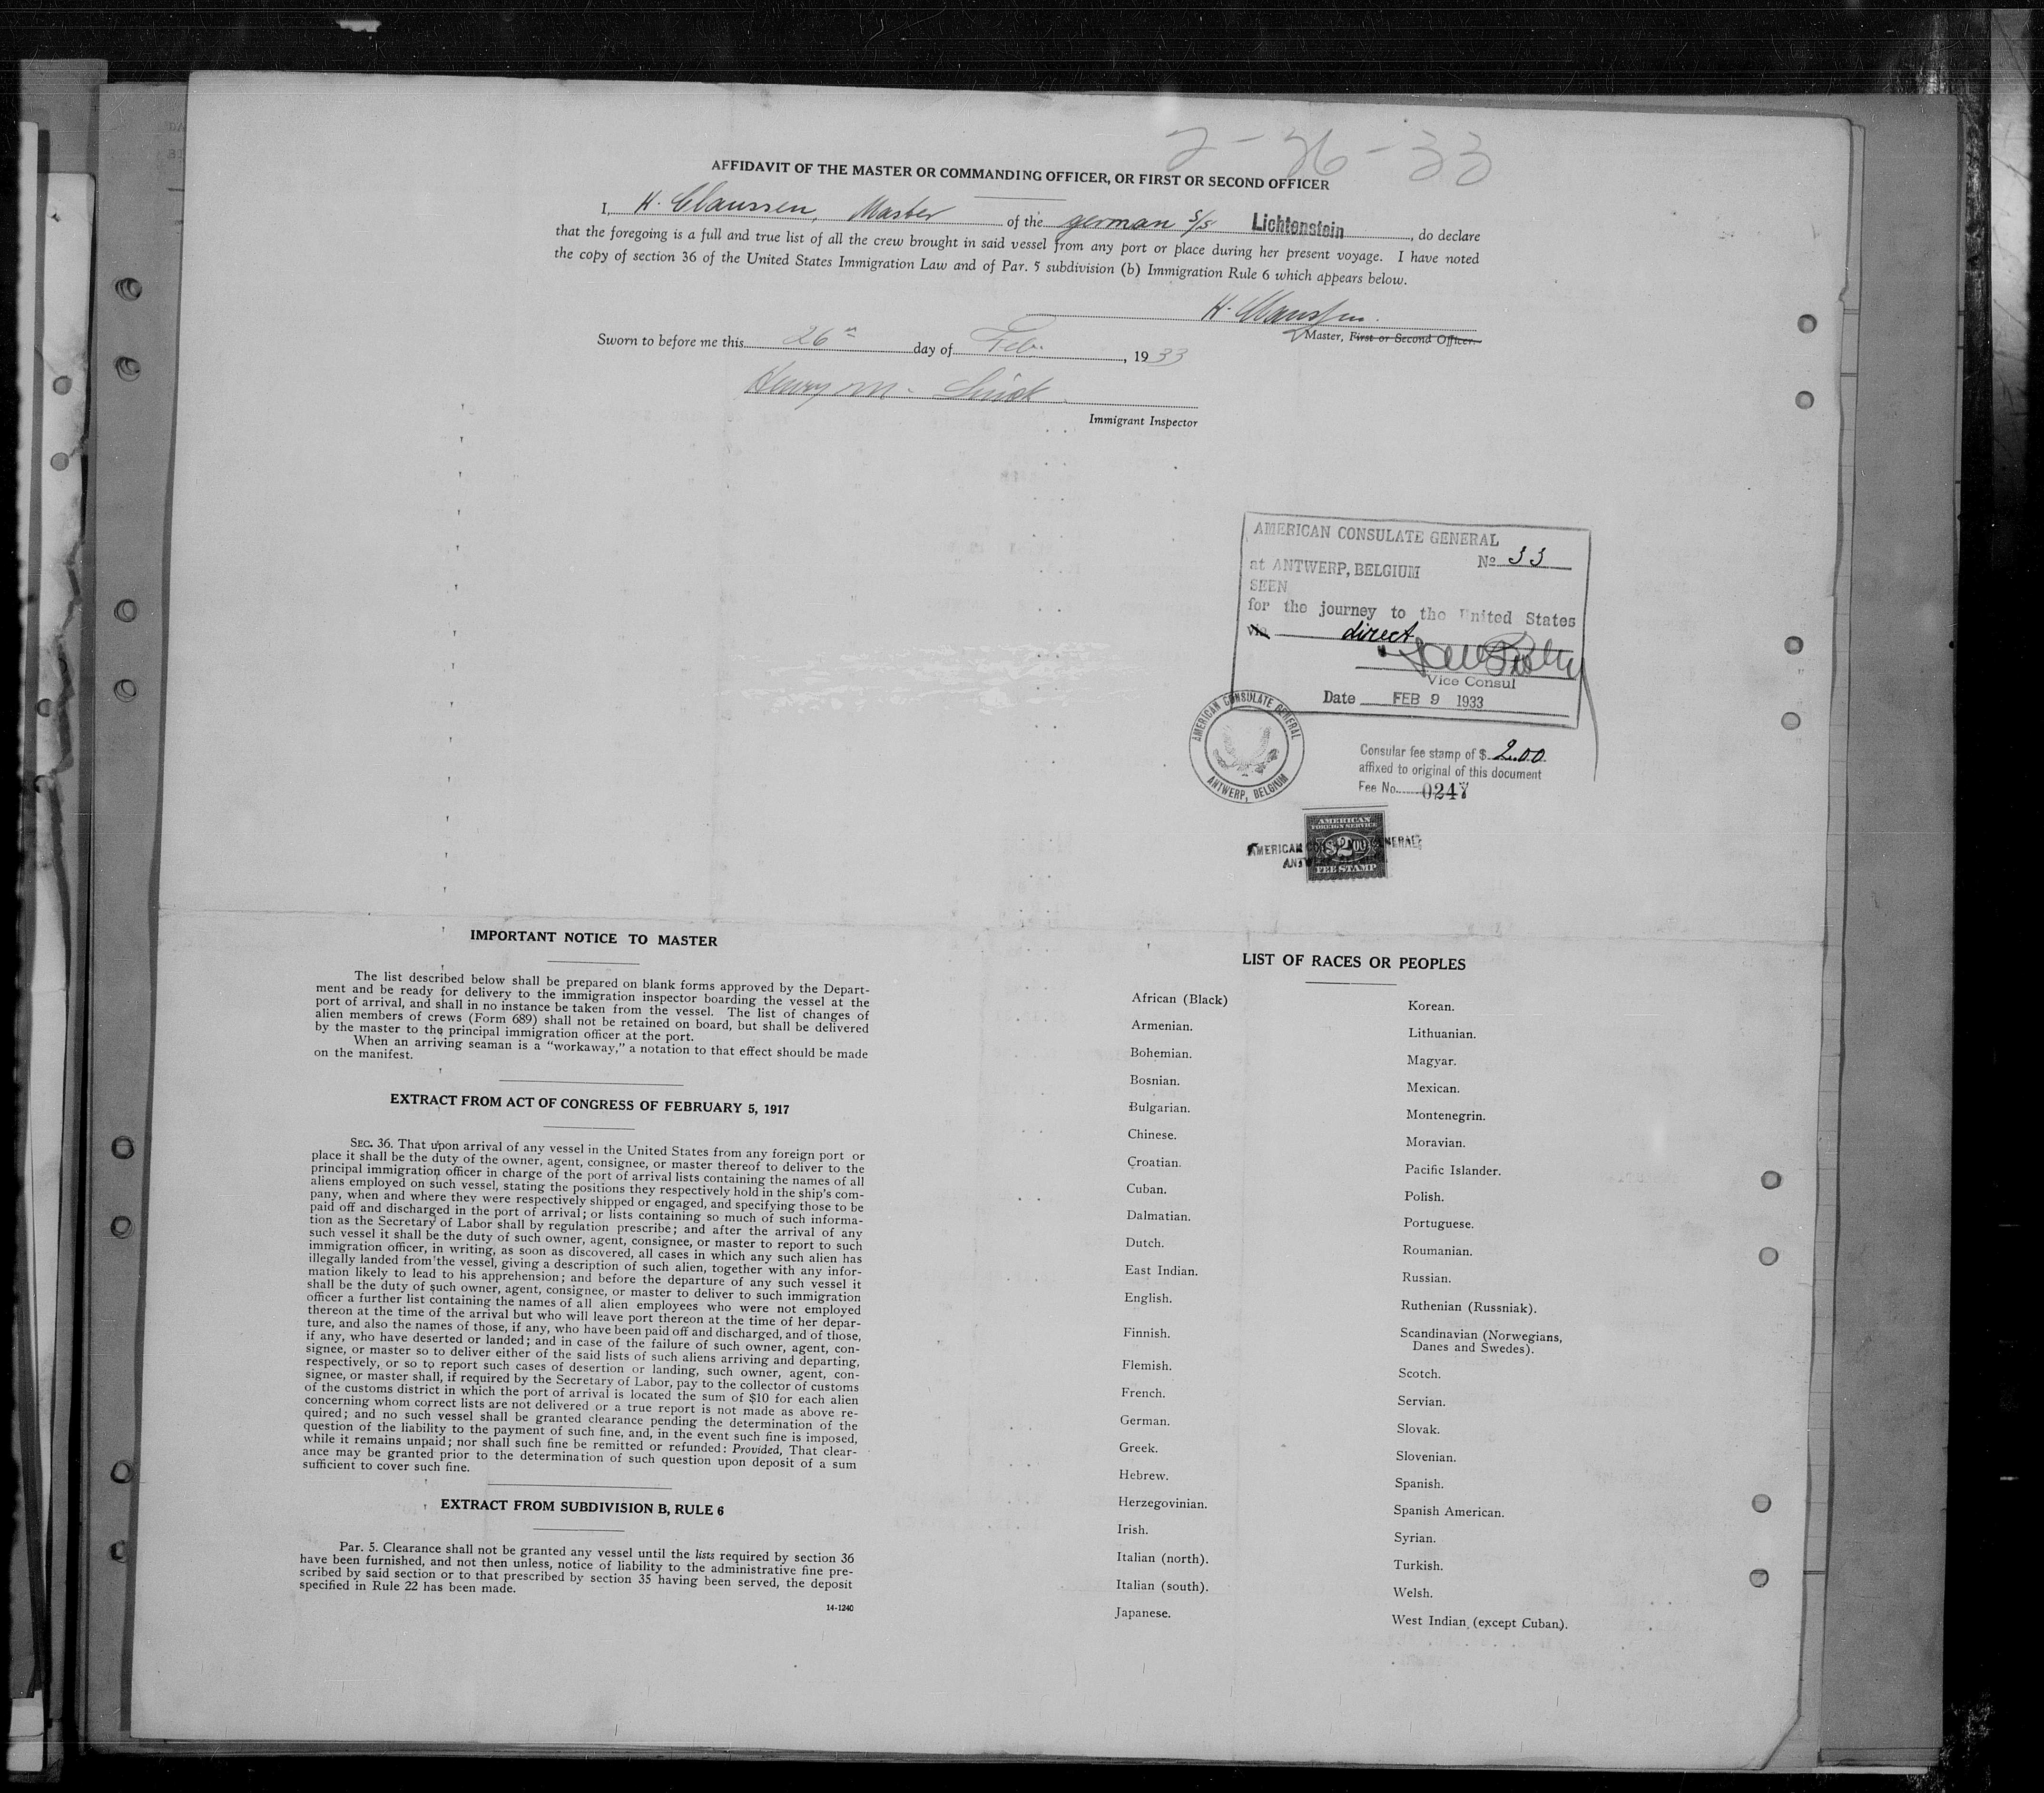 2-26-33
AFFIDAVIT OF THE MASTER OR COMMANDING OFFICER, OR FIRST OR SECOND OFFICER
I, H. Claussen, Master of the german S/S Lichtenstein, do declare
that the foregoing is a full and true list of all the crew brought in said vessel from any port or place during her present voyage. I have noted
the copy of section 36 of the United States Immigration Law and of Par. 5 subdivision (b) Immigration Rule 6 which appears below.
H. Claussen.
Master, First or Second Officer.
Sworn to before me this 26th day of Feb., 1933
Henry M.
Immigrant Inspector
AMERICAN CONSULATE GENERAL
No 33
at ANTWERP, BELGIUM
SEEN
for the journey to the United States
via direct
Vice Consul
Date FEB 9 1933
AMERICAN CONSULATE GENERAL
ANTWERP, BELGIUM
Consular fee stamp of $ 2.00
affixed to original of this document
Fee No. 0247
AMERICAN
FOREIGN SERVICE
$2.00
FEE STAMP
AMERICAN CONSULATE GENERAL
IMPORTANT NOTICE TO MASTER
The list described below shall be prepared on blank forms approved by the Depart-
ment and be ready for delivery to the immigration inspector boarding the vessel at the
port of arrival, and shall in no instance be taken from the vessel. The list of changes of
alien members of crews (Form 689) shall not be retained on board, but shall be delivered
by the master to the principal immigration officer at the port.
When an arriving seaman is a "workaway," a notation to that effect should be made
on the manifest.
EXTRACT FROM ACT OF CONGRESS OF FEBRUARY 5, 1917
SEC. 36. That upon arrival of any vessel in the United States from any foreign port or
place it shall be the duty of the owner, agent, consignee, or master thereof to deliver to the
principal immigration officer in charge of the port of arrival lists containing the names of all
aliens employed on such vessel, stating the positions they respectively hold in the ship's com-
pany, when and where they were respectively shipped or engaged, and specifying those to be
paid off and discharged in the port of arrival; or lists containing so much of such informa-
tion as the Secretary of Labor shall by regulation prescribe; and after the arrival of any
such vessel it shall be the duty of such owner, agent, consignee, or master to report to such
immigration officer, in writing, as soon as discovered, all cases in which any such alien has
illegally landed from the vessel, giving a description of such alien, together with any infor-
mation likely to lead to his apprehension; and before the departure of any such vessel it
shall be the duty of such owner, agent, consignee, or master to deliver to such immigration
officer a further list containing the names of all alien employees who were not employed
thereon at the time of the arrival but who will leave port thereon at the time of her depar-
ture, and also the names of those, if any, who have been paid off and discharged, and of those,
if any, who have deserted or landed; and in case of the failure of such owner, agent, con-
signee, or master so to deliver either of the said lists of such aliens arriving and departing,
respectively, or so to report such cases of desertion or landing, such owner, agent, con-
signee, or master shall, if required by the Secretary of Labor, pay to the collector of customs
of the customs district in which the port of arrival is located the sum of $10 for each alien
concerning whom correct lists are not delivered or a true report is not made as above re-
quired; and no such vessel shall be granted clearance pending the determination of the
question of the liability to the payment of such fine, and, in the event such fine is imposed,
while it remains unpaid; nor shall such fine be remitted or refunded: Provided, That clear-
ance may be granted prior to the determination of such question upon deposit of a sum
sufficient to cover such fine.
EXTRACT FROM SUBDIVISION B, RULE 6
Par. 5. Clearance shall not be granted any vessel until the lists required by section 36
have been furnished, and not then unless, notice of liability to the administrative fine pre-
scribed by said section or to that prescribed by section 35 having been served, the deposit
specified in Rule 22 has been made.
14-1240
LIST OF RACES OR PEOPLES
African (Black)
Armenian.
Bohemian.
Bosnian.
Bulgarian.
Chinese.
Croatian.
Cuban.
Dalmatian.
Dutch.
East Indian.
English.
Finnish.
Flemish.
French.
German.
Greek.
Hebrew.
Herzegovinian.
Irish.
Italian (north).
Italian (south).
Japanese.
Korean.
Lithuanian.
Magyar.
Mexican.
Montenegrin.
Moravian.
Pacific Islander.
Polish.
Portuguese.
Roumanian.
Russian.
Ruthenian (Russniak).
Scandinavian (Norwegians,
Danes and Swedes).
Scotch.
Servian.
Slovak.
Slovenian.
Spanish.
Spanish American.
Syrian.
Turkish.
Welsh.
West Indian (except Cuban).